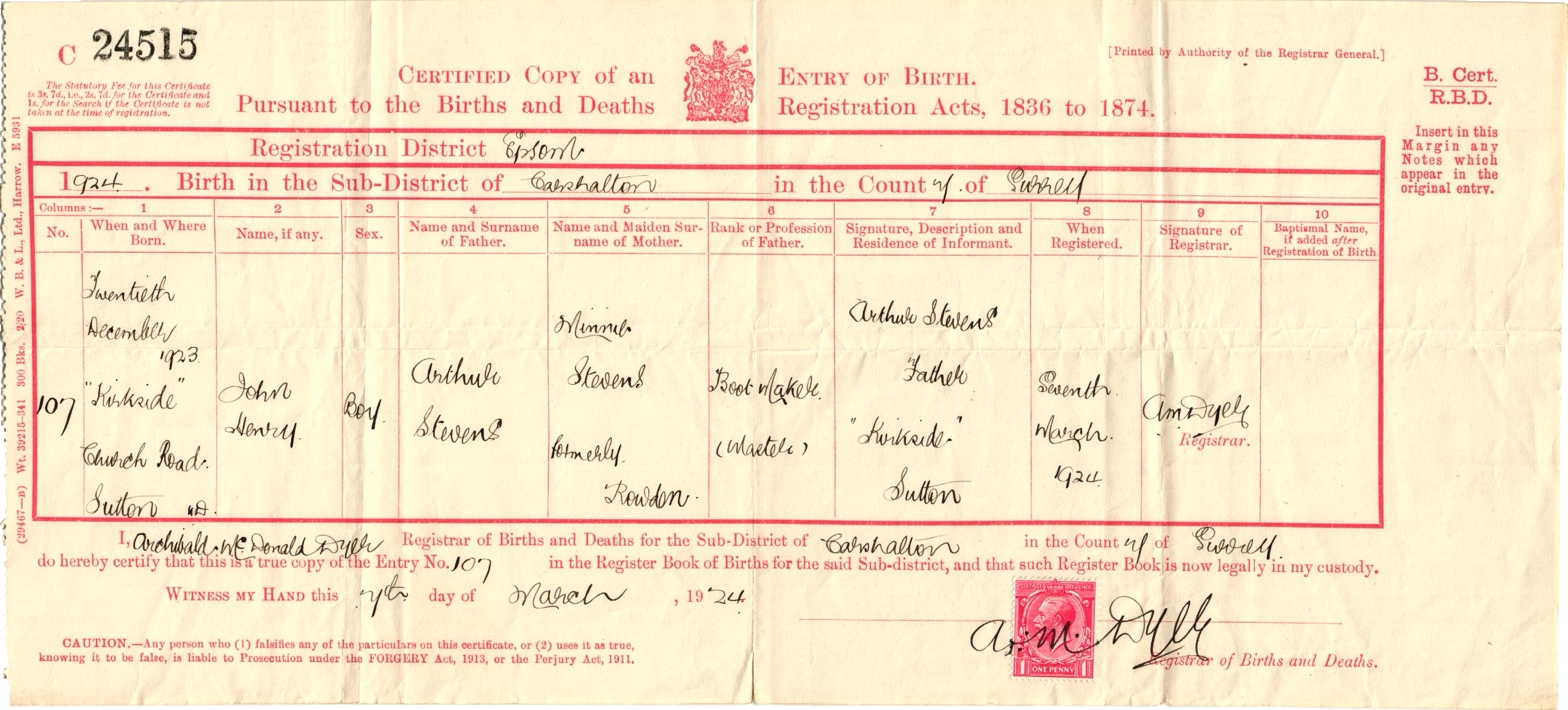 C 24515
[Printed by Authority of the Registrar General.]
The Statutory Fee for this Certificate
is 3s. 7d., i.e., 2s. 7d. for the Certificate and
1s. for the Search if the Certificate is not
taken at the time of registration.
Certified Copy of an Entry of Birth.
Pursuant to the Births and Deaths Registration Acts, 1836 to 1874.
B. Cert.
R.B.D.
Insert in this
Margin any
Notes which
appear in the
original entry.
Registration District Epsom
1924. Birth in the Sub-District of Carshalton in the County of Surrey
Columns:— 1 2 3 4 5 6 7 8 9 10
No. When and Where Born. Name, if any. Sex. Name and Surname of Father. Name and Maiden Surname of Mother. Rank or Profession of Father. Signature, Description and Residence of Informant. When Registered. Signature of Registrar. Baptismal Name, if added after Registration of Birth
107
Twentieth
December
1923
"Kirkside"
Church Road
Sutton
John
Henry
Boy
Arthur
Stevens
Minnie
Stevens
formerly
Rowden
Boot Maker
(Master)
Arthur Stevens
Father
"Kirkside"
Sutton
Seventh
March
1924
Registrar.
I, Archibald Registrar of Births and Deaths for the Sub-District of Carshalton in the County of Surrey
do hereby certify that this is a true copy of the Entry No. 107 in the Register Book of Births for the said Sub-district, and that such Register Book is now legally in my custody.
Witness my Hand this 7th day of March, 1924
CAUTION.—Any person who (1) falsifies any of the particulars on this certificate, or (2) uses it as true,
knowing it to be false, is liable to Prosecution under the FORGERY Act, 1913, or the Perjury Act, 1911.
1 ONE PENNY 1
Registrar of Births and Deaths.
(29467—B) Wt. 39215—341 300 Bks. 2/20 W. B. & L., Ltd., Harrow. E 5931